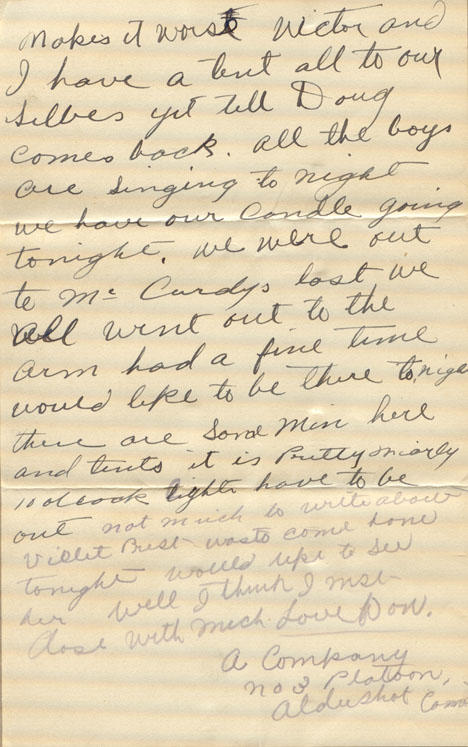 Makes it worst Victor and
I have a tent all to our
Selbes yet till Doug
comes back. all the boys
are singing to night
we have our candle going
tonight. we were out
to Mc Curdys last we
all went out to the
arm had a fine time
would like to be there tonigh
there are Some Min here
and tents it is Pretty niarly
10 oclock lights have to be
out not much to write about
Violet Brest wasto come home
tonight would like to see
her Well I think I mst
Close with much Love Don.
A Company
no 3 Platoon,
Aldershot Cam